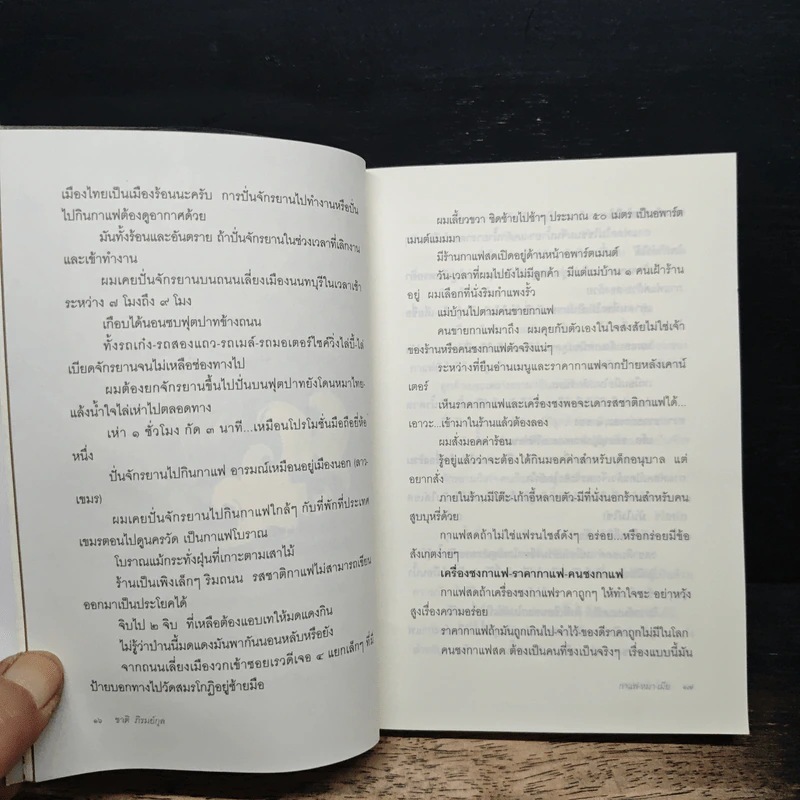 เมืองไทยเป็นเมืองร้อนนะครับ การปั่นจักรยานไปทำงานหรือปั่น
ไปกินกาแฟต้องดูอากาศด้วย
มันทั้งร้อนและอันตราย ถ้าปั่นจักรยานในช่วงเวลาที่เลิกงาน
และเข้าทำงาน
ผมเคยปั่นจักรยานบนถนนเลี่ยงเมืองนนทบุรีในเวลาเช้า
ระหว่าง ๗ โมงถึง ๙ โมง
เกือบได้นอนซบฟุตปาทข้างถนน
ทั้งรถเก๋ง-รถสองแถว-รถเมล์-รถมอเตอร์ไซค์วิ่งไล่บี้-ไล่
เบียดจักรยานจนไม่เหลือช่องทางไป
ผมต้องยกจักรยานขึ้นไปปั่นบนฟุตปาทยังโดนหมาไทย-
แล้งน้ำใจไล่เห่าไปตลอดทาง
เห่า ๑ ชั่วโมง กัด ๓ นาที...เหมือนโปรโมชั่นมือถือยี่ห้อ
หนึ่ง
ปั่นจักรยานไปกินกาแฟ อารมณ์เหมือนอยู่เมืองนอก (ลาว-
เขมร)
ผมเคยปั่นจักรยานไปกินกาแฟใกล้ๆ กับที่พักที่ประเทศ
เขมรตอนไปดูนครวัด เป็นกาแฟโบราณ
โบราณแม้กระทั่งฝุ่นที่เกาะตามเสาไม้
ร้านเป็นเพิงเล็กๆ ริมถนน รสชาติกาแฟไม่สามารถเขียน
ออกมาเป็นประโยคได้
จิบไป ๒ จิบ ที่เหลือต้องแอบเทให้มดแดงกิน
ไม่รู้ว่าป่านนี้มดแดงมันพากันนอนหลับหรือยัง
จากถนนเลี่ยงเมืองวกเข้าซอยเรวดีเจอ ๔ แยกเล็กๆ ที่มี
ป้ายบอกทางไปวัดสมรโกฏิอยู่ซ้ายมือ
๑๖ ชาติ ภิรมย์กุล
ผมเลี้ยวขวา ชิดซ้ายไปช้าๆ ประมาณ ๕๐ เมตร เป็นอพาร์ต
เมนต์แมมมา
มีร้านกาแฟสดเปิดอยู่ด้านหน้าอพาร์ตเมนต์
วัน-เวลาที่ผมไปยังไม่มีลูกค้า มีแต่แม่บ้าน ๑ คนเฝ้าร้าน
อยู่ ผมเลือกที่นั่งริมกำแพงรั้ว
แม่บ้านไปตามคนขายกาแฟ
คนขายกาแฟมาถึง ผมคุยกับตัวเองในใจสงสัยไม่ใช่เจ้า
ของร้านหรือคนชงกาแฟตัวจริงแน่ๆ
ระหว่างที่ยืนอ่านเมนูและราคากาแฟจากป้ายหลังเคาน์
เตอร์
เห็นราคากาแฟและเครื่องชงพอจะเดารสชาติกาแฟได้...
เอาวะ...เข้ามาในร้านแล้วต้องลอง
ผมสั่งมอคค่าร้อน
รู้อยู่แล้วว่าจะต้องได้กินมอคค่าสำหรับเด็กอนุบาล แต่
อยากสั่ง
ภายในร้านมีโต๊ะ-เก้าอี้หลายตัว-มีที่นั่งนอกร้านสำหรับคน
สูบบุหรี่ด้วย
กาแฟสดถ้าไม่ใช่แฟรนไชส์ดังๆ อร่อย...หรือกร่อยมีข้อ
สังเกตง่ายๆ
เครื่องชงกาแฟ-ราคากาแฟ-คนชงกาแฟ
กาแฟสดถ้าเครื่องชงกาแฟราคาถูกๆ ให้ทำใจซะ อย่าหวัง
สูงเรื่องความอร่อย
ราคากาแฟถ้ามันถูกเกินไป-จำไว้-ของดีราคาถูกไม่มีในโลก
คนชงกาแฟสด ต้องเป็นคนที่ชงเป็นจริงๆ เรื่องแบบนี้มัน
๑๗